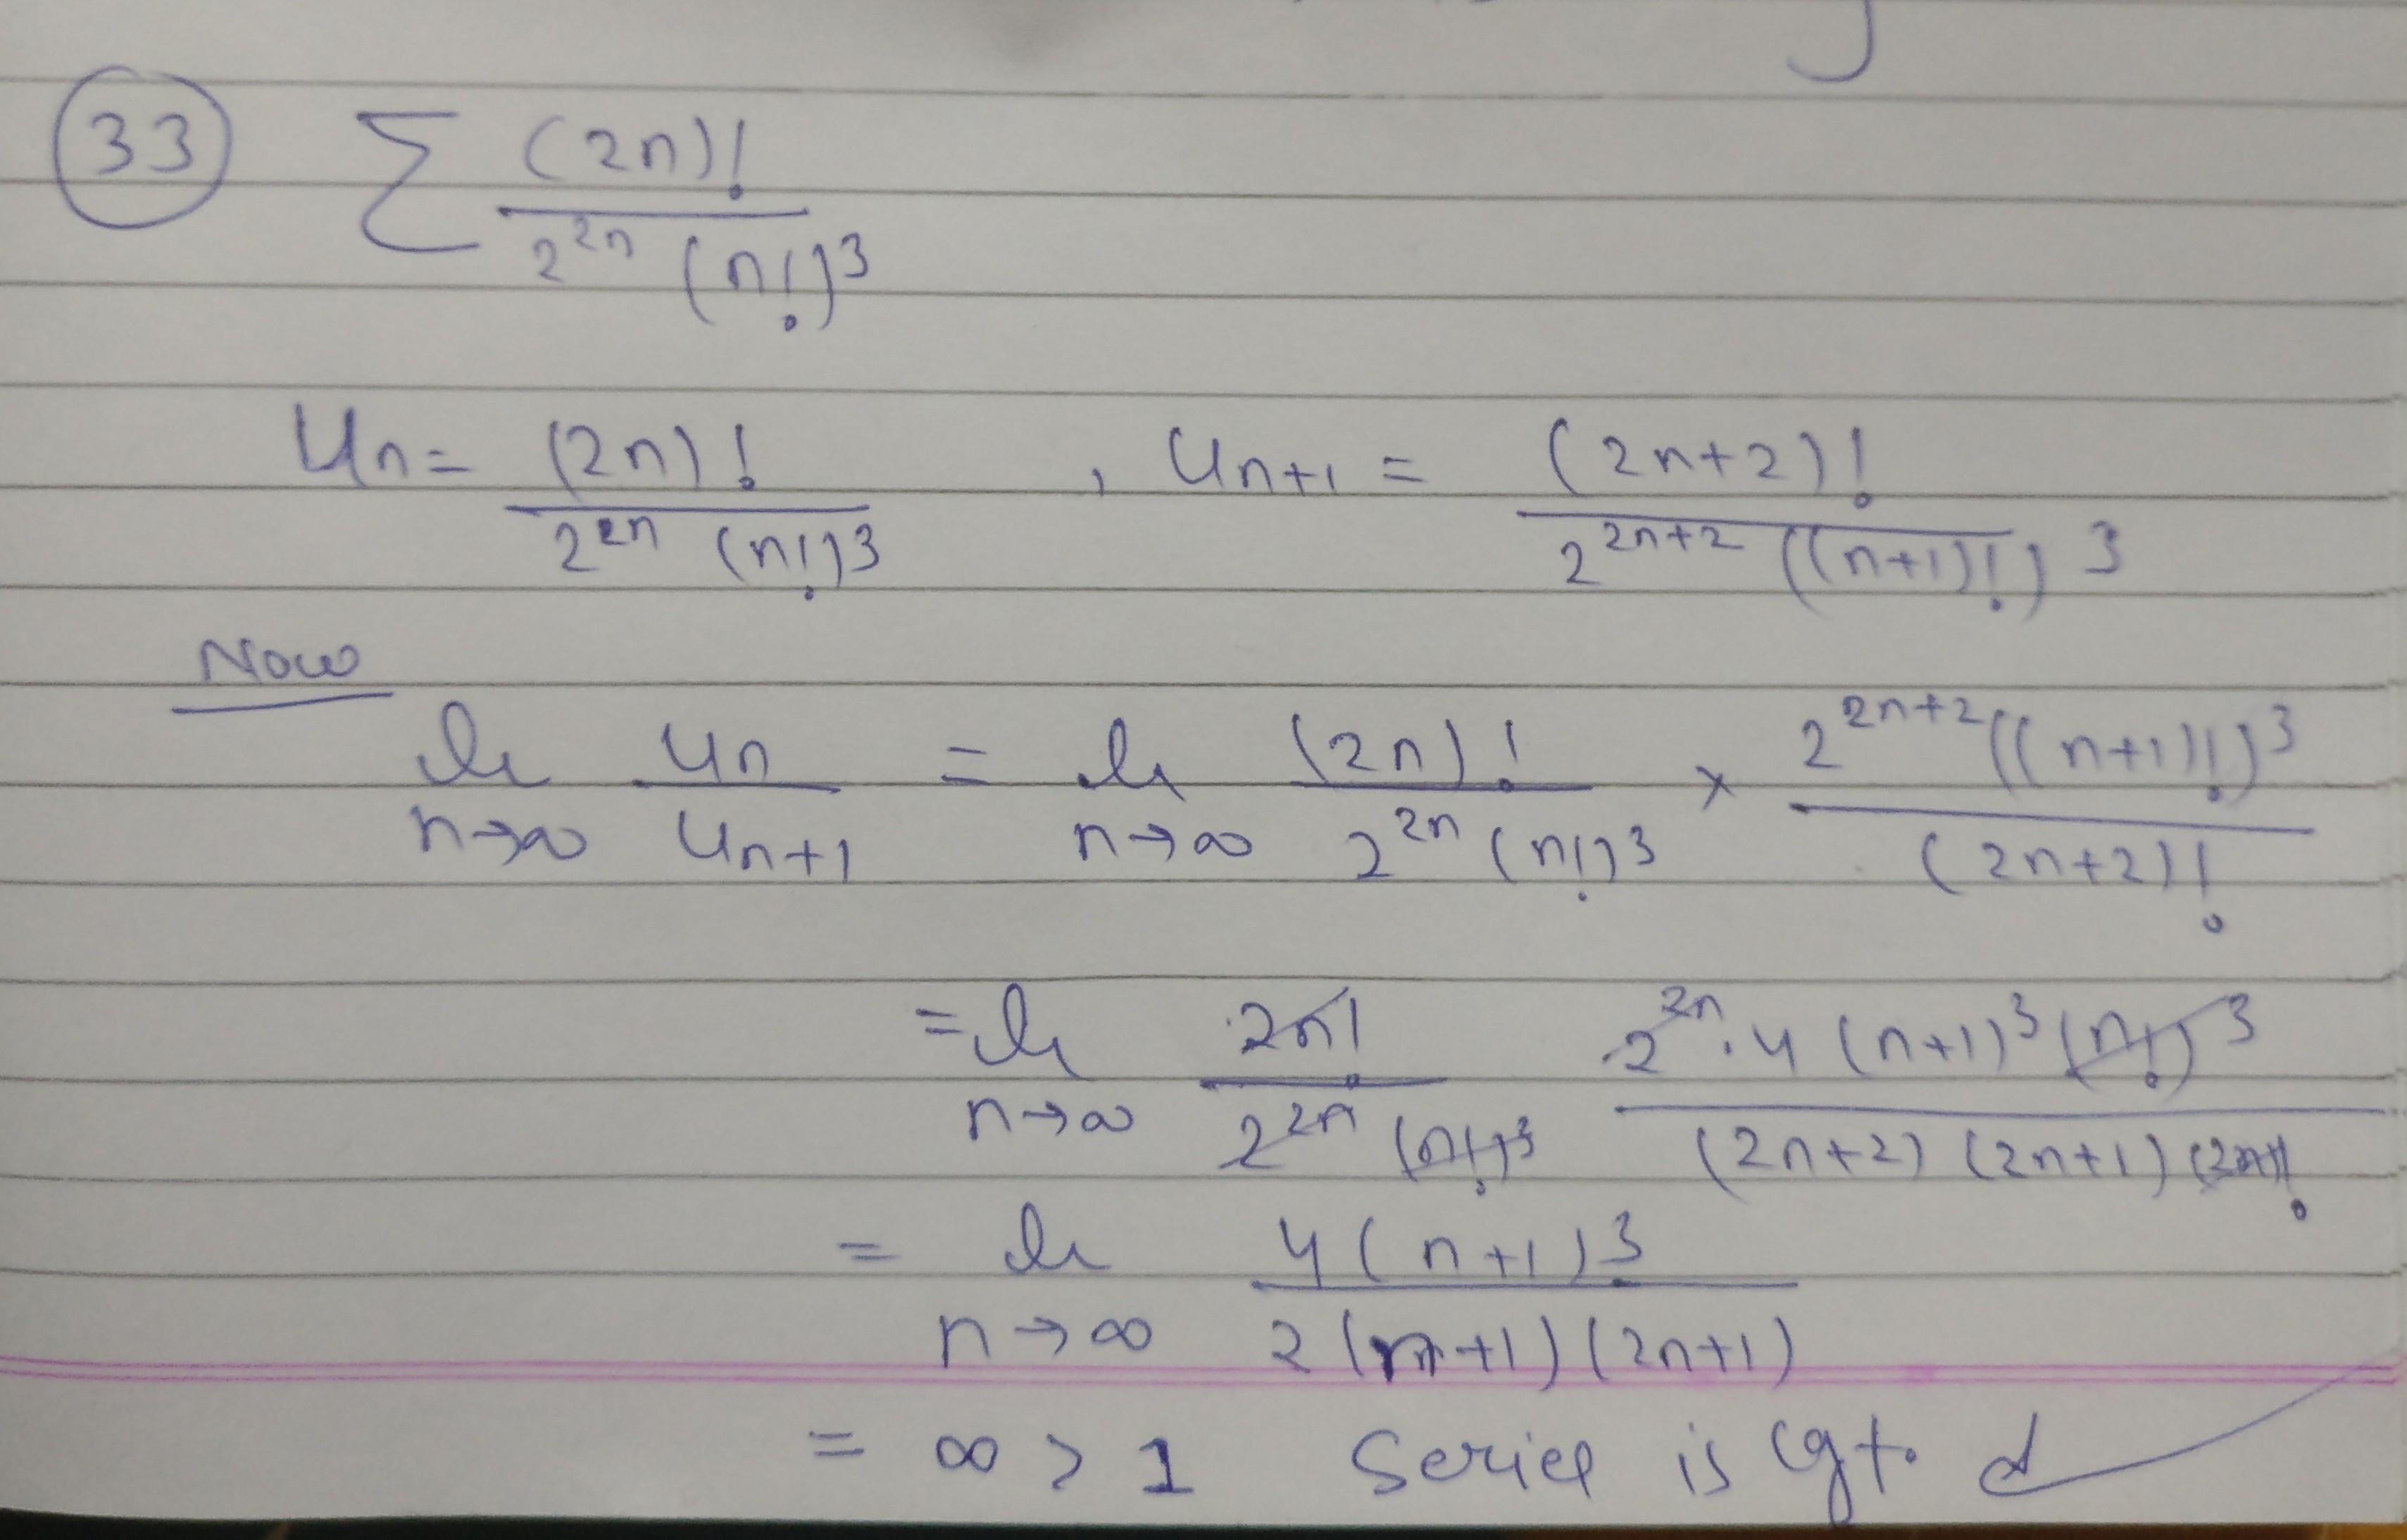 33 ∑ (2n)! / 2^{2n} (n!)^3
Un = (2n)! / 2^{2n} (n!)^3 , Un+1 = (2n+2)! / 2^{2n+2} ((n+1)!)^3
Now
lt n→∞ Un / Un+1 = lt n→∞ (2n)! / 2^{2n} (n!)^3 × 2^{2n+2} ((n+1)!)^3 / (2n+2)!
= lt n→∞ 2n! / 2^{2n} (n!)^3 2^{2n}.4 (n+1)^3 (n!)^3 / (2n+2) (2n+1) (2n)!
= lt n→∞ 4(n+1)^3 / 2(n+1)(2n+1)
= ∞ > 1 Series is cgt.